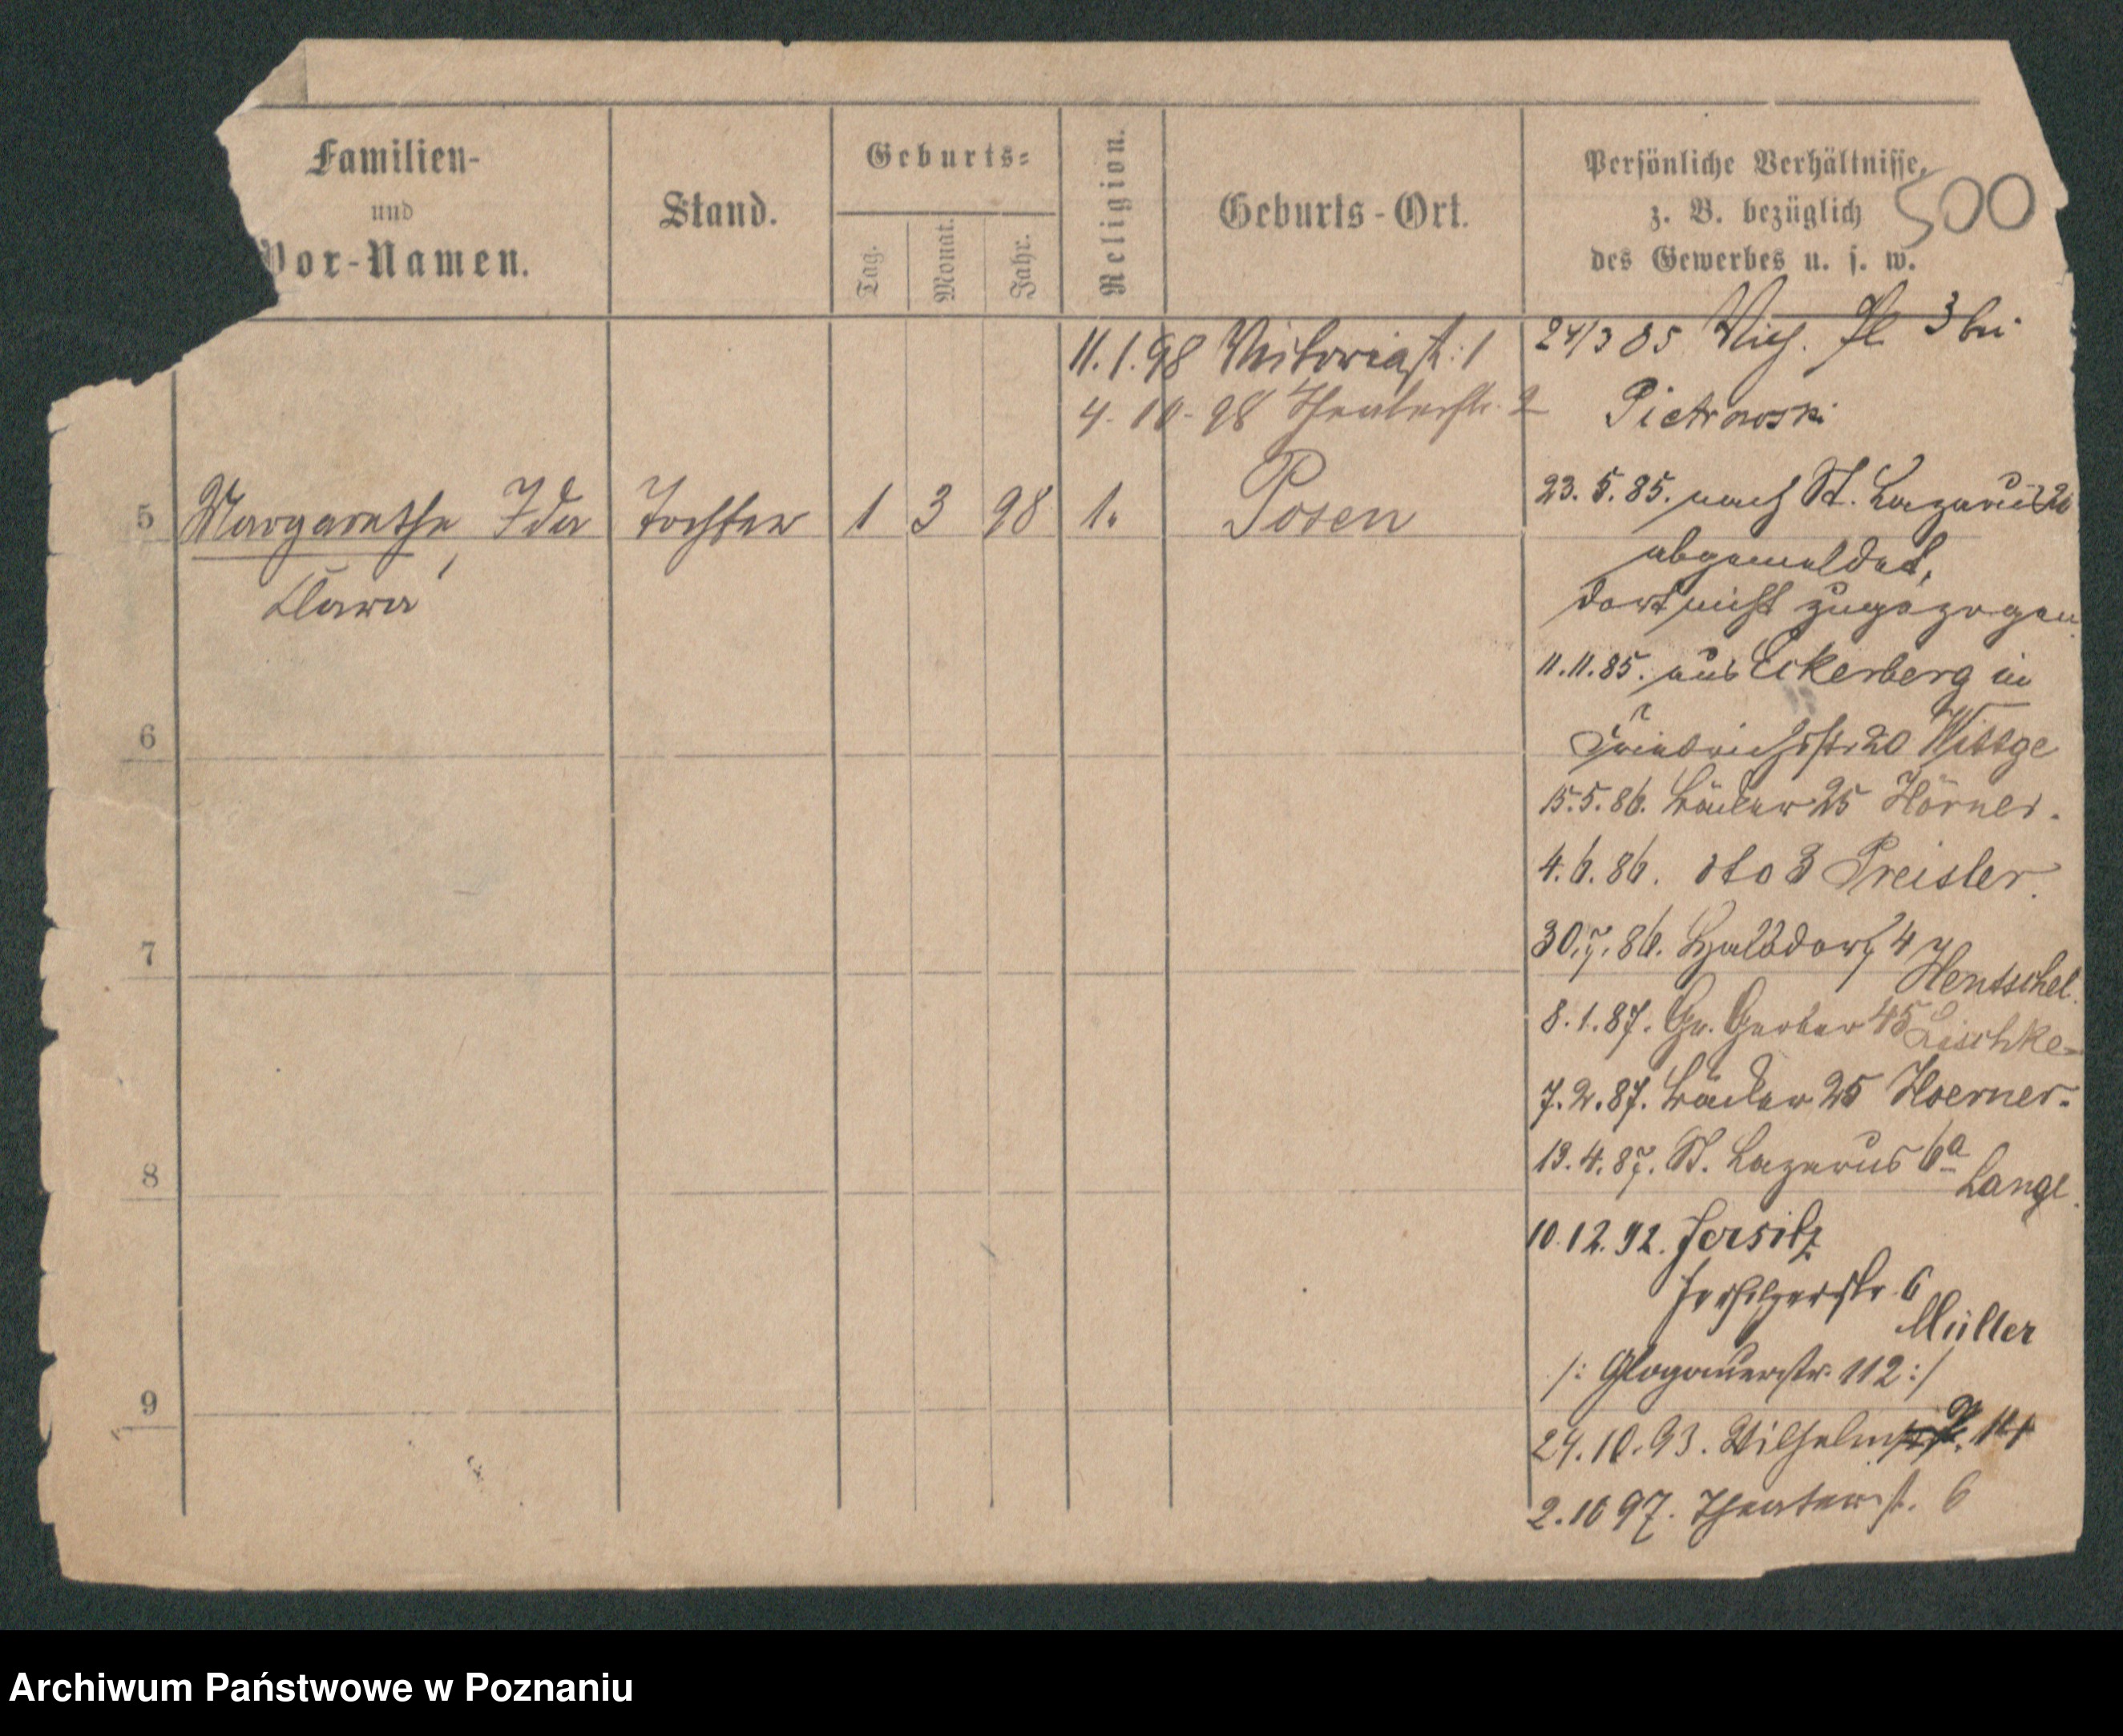 Familien-
und
Vor-Namen.
Stand.
Geburts-
Tag.
Monat.
Jahr.
Religion.
Geburts-Ort.
Persönliche Verhältnisse,
z. B. bezüglich
des Gewerbes u. s. w.
500
11. 1. 98 Viktoriastr: 1
4. 10. 98 Theaterstr. 2
24/3 85 Pl 3 bei
Pietrowski
5 Margarethe, Ida Tochter 1 3 98 1. Posen
Clara
23. 5. 85. nach St. Lazarus
abgemeldet,
dort nicht zugezogen
11. 11. 85. aus Eckerberg in
Friedrichsstr 20 Wittge
15. 5. 86. Bäcker 25 Hörner.
4. 6. 86. dto 3 Preisler.
30. 7. 86. Halbdorf 4
Hentschel.
8. 1. 87. Gr. Gerber 45 Lischke
7. 2. 87. Bäcker 25 Hoerner.
19. 4. 87. St. Lazarus 6a
Lange.
10. 12. 92. Jersitz
Jersitzerstr. 6
Müller
/: Glogauerstr. 112 :/
24. 10. 93. Wilhelm
2. 10 97. Theaterst. 6
6
7
8
9
Archiwum Państwowe w Poznaniu